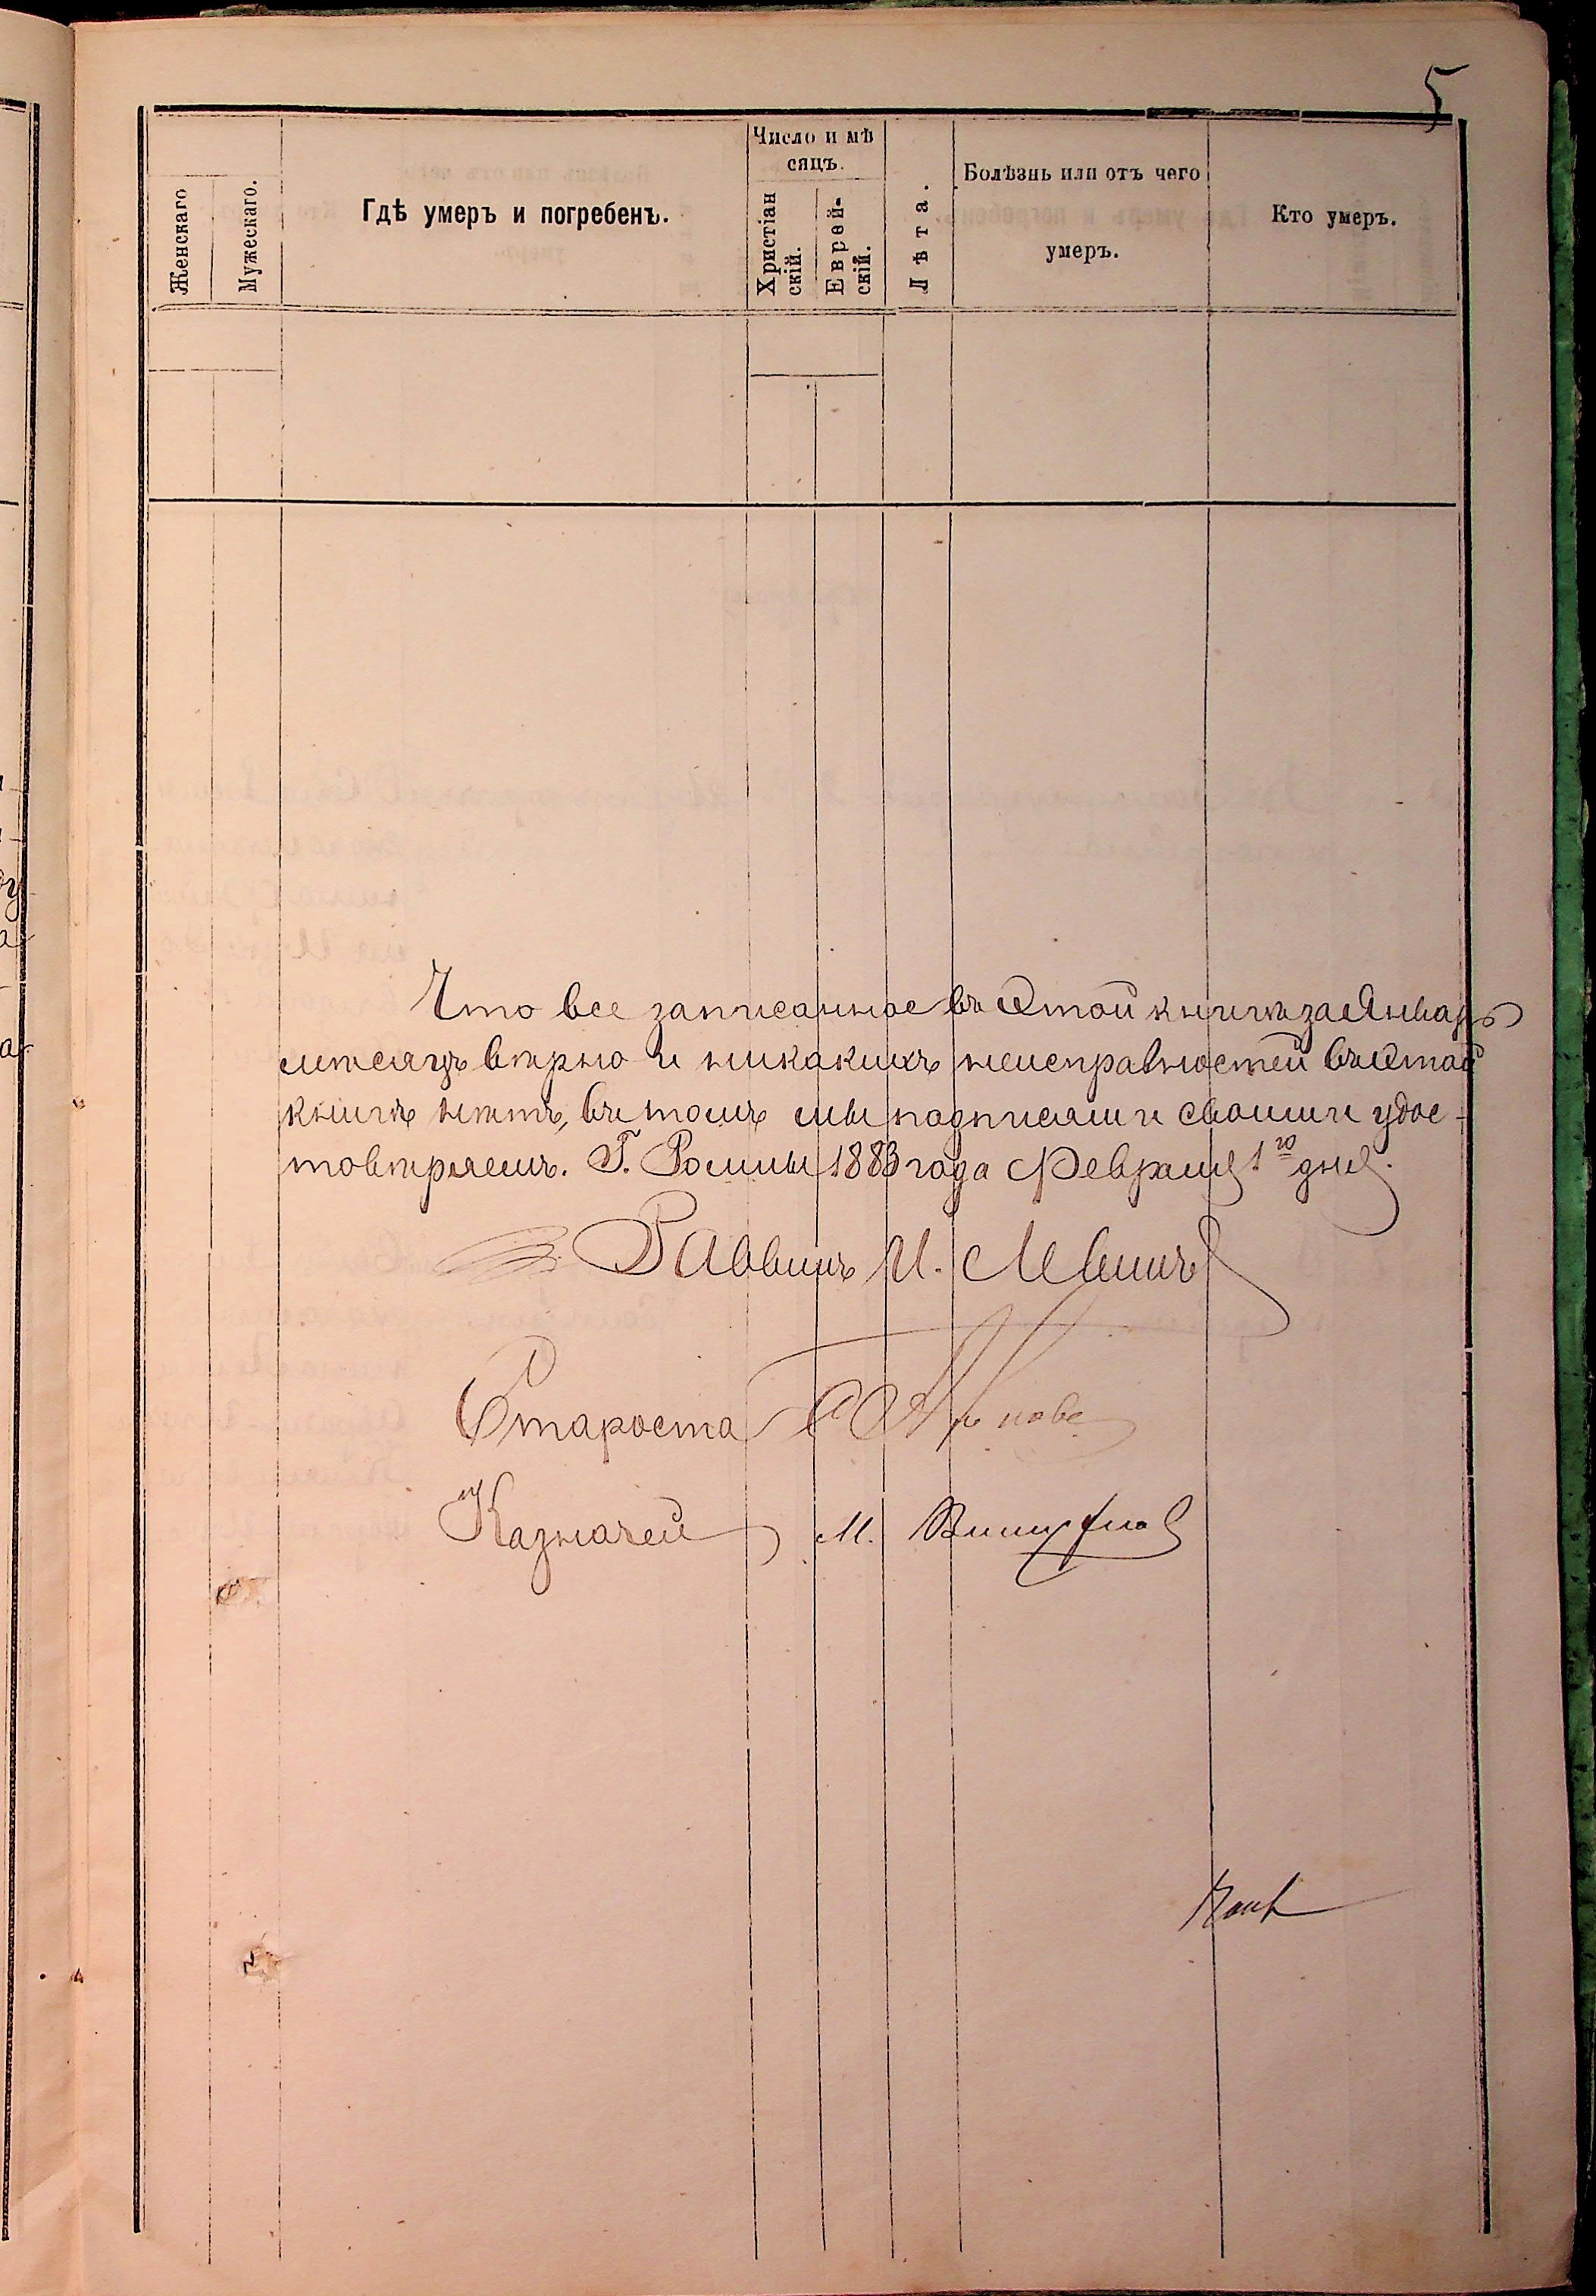 5
Женскаго
Мужескаго.
Гдѣ умеръ и погребенъ.
Число и мѣ
сяцъ.
Христіан
скій.
Еврей-
скій.
Лѣта.
Болѣзнь или отъ чего
умеръ.
Кто умеръ.
Что все записанное въ этой книгѣ за Январь
мѣсяцъ вѣрно и никакихъ неисправностей въ этой
книгѣ нѣтъ, въ томъ мы подписями своими удос-
товѣряемъ. Г. Ромны 1883 года Февраля 1го дня.
Раввинъ И. Левинъ
Староста
Казначей М.